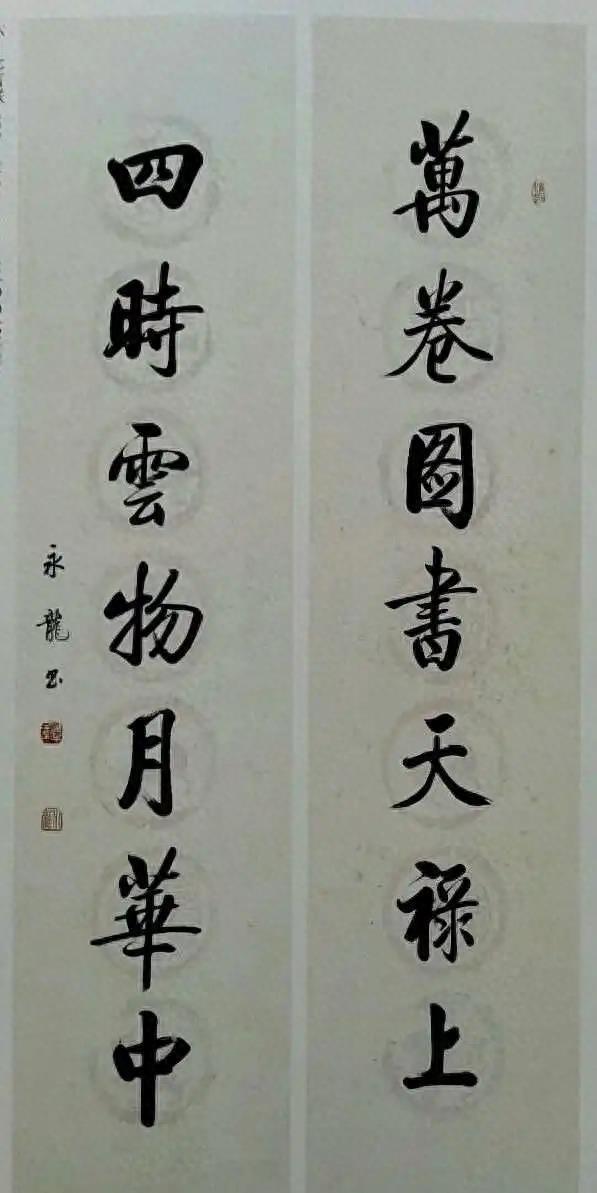 萬卷圖書天祿上
四時雲物月華中
永龍書